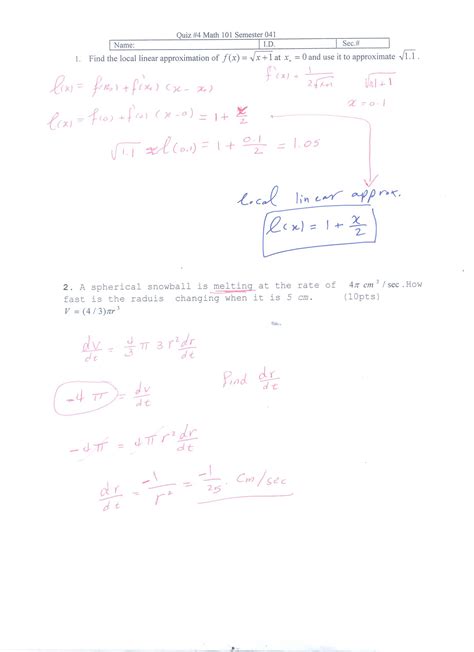 Quiz #4 Math 101 Semester 041
Name: I.D. Sec.#
1. Find the local linear approximation of f(x) = √(x+1) at x₀ = 0 and use it to approximate √1.1 .
l(x) = f(x₀) + f'(x₀) (x - x₀)
f'(x) = 1/(2√(x+1))
√(0.1+1)
x = 0.1
l(x) = f(0) + f'(0) (x-0) = 1 + x/2
√1.1 ≈ l(0.1) = 1 + 0.1/2 = 1.05
local linear approx.
l(x) = 1 + x/2
2. A spherical snowball is melting at the rate of 4π cm³ / sec .How
fast is the raduis changing when it is 5 cm. (10pts)
V = (4/3)πr³
dv/dt = 4/3 π 3 r² dr/dt
-4π = dv/dt
Find dr/dt
-4π = 4π r² dr/dt
dr/dt = -1/r² = -1/25 . Cm/sec